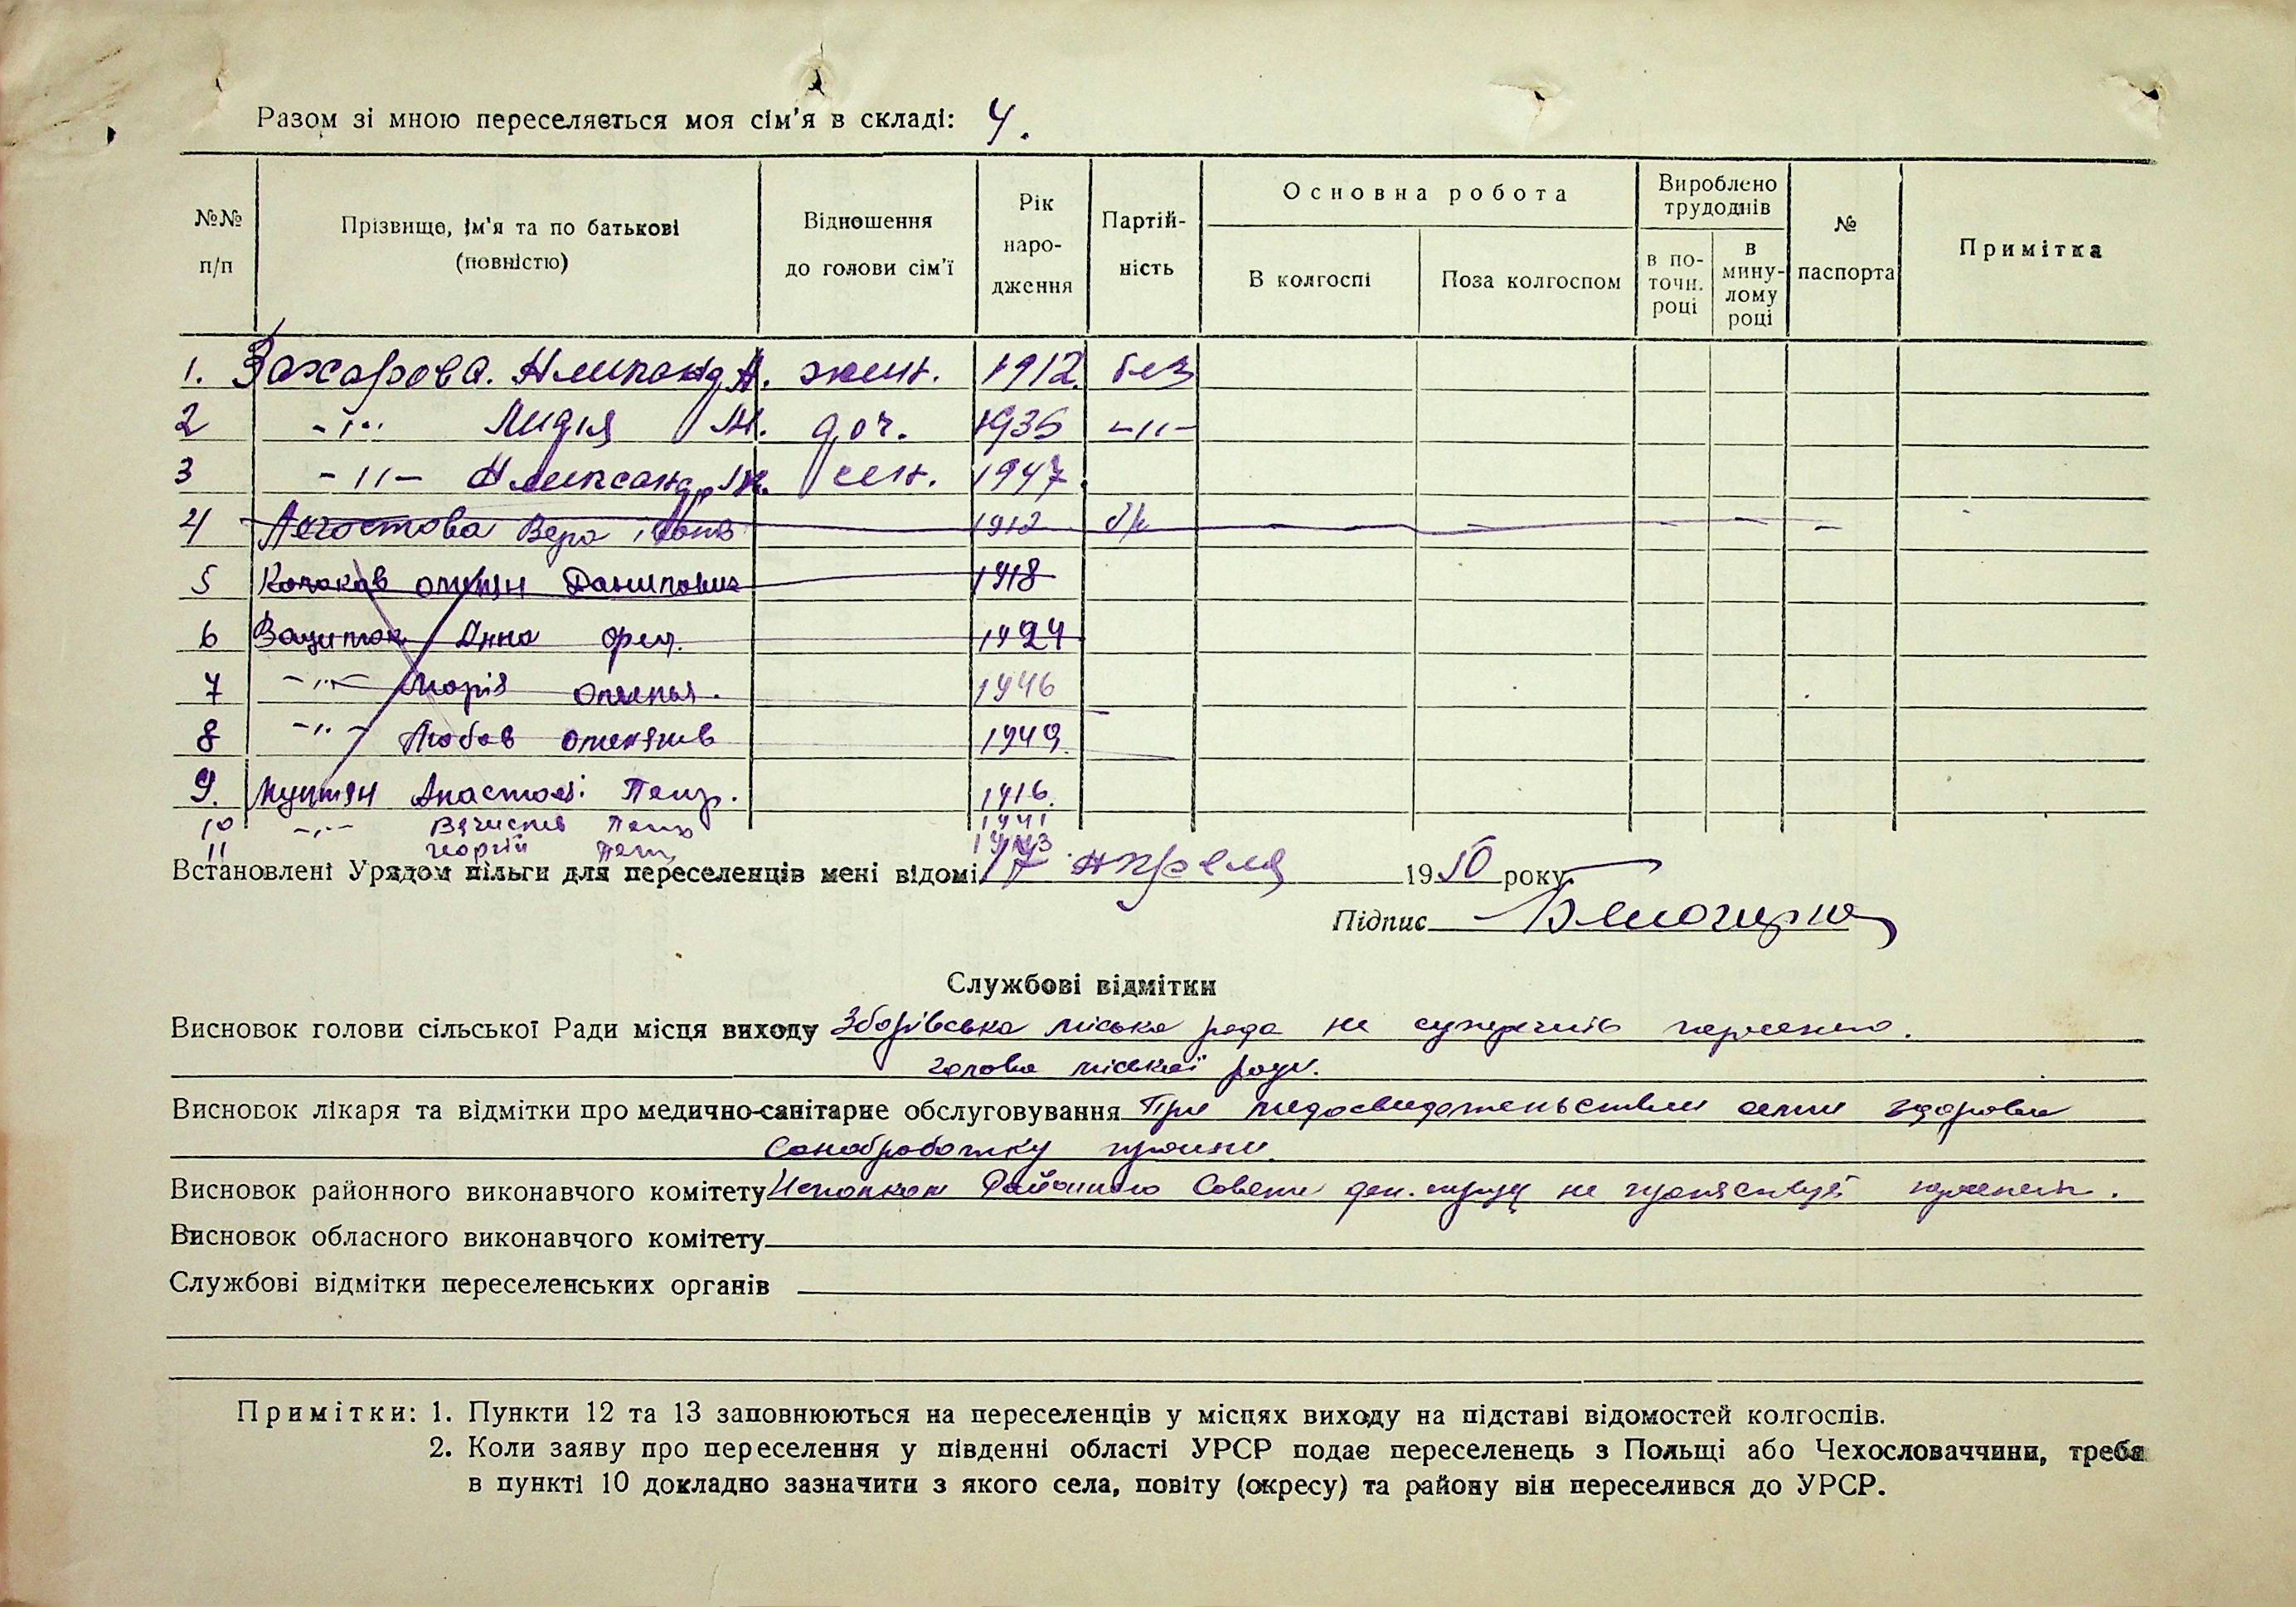 Разом зі мною переселяється моя сім'я в складі: 4.
№№ п/п
Прізвище, ім'я та по батькові (повністю)
Відношення до голови сім'ї
Рік народження
Партійність
Основна робота
В колгоспі
Поза колгоспом
Вироблено трудоднів
в поточн. році
в минулому році
№ паспорта
Примітка
1. Захарова А. жен. 1912 без
2 -"- Лидия М. доч. 1935 -"-
3 -"- Александр М. сын. 1947
4 Вера 1912 б/п
5 1918
6 Анна 1924
7 -"- Марія 1946
8 -"- Любов 1949
9. Анастасі Петр. 1916
10 -"- 1941
11 Георгій Петр 1943
Встановлені Урядом пільги для переселенців мені відомі 17 Апреля 1950 року
Підпис
Службові відмітки
Висновок голови сільської Ради місця виходу Зборівська міська рада не
голова міської ради.
Висновок лікаря та відмітки про медично-санітарне обслуговування При здоровы
Санобработку прошли.
Висновок районного виконавчого комітету Исполком Районного Совета деп. труд не
Висновок обласного виконавчого комітету
Службові відмітки переселенських органів
Примітки: 1. Пункти 12 та 13 заповнюються на переселенців у місцях виходу на підставі відомостей колгоспів.
2. Коли заяву про переселення у південні області УРСР подає переселенець з Польщі або Чехословаччини, треба
в пункті 10 докладно зазначити з якого села, повіту (окресу) та району він переселився до УРСР.